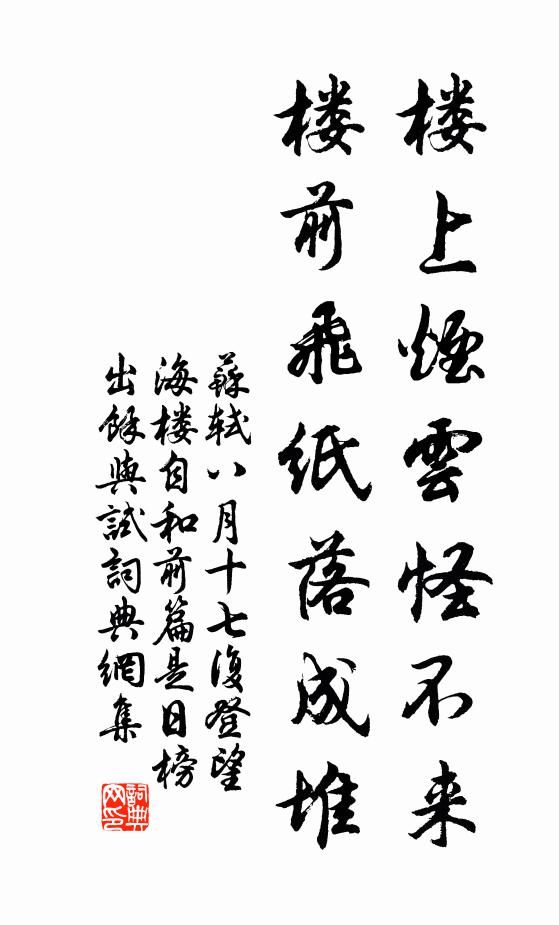 楼上煙雲怪不来
楼前飛紙落成堆
蘇軾八月十七復登望
海楼自和前篇是日榜
出餘與試詞典網集
詞典网印